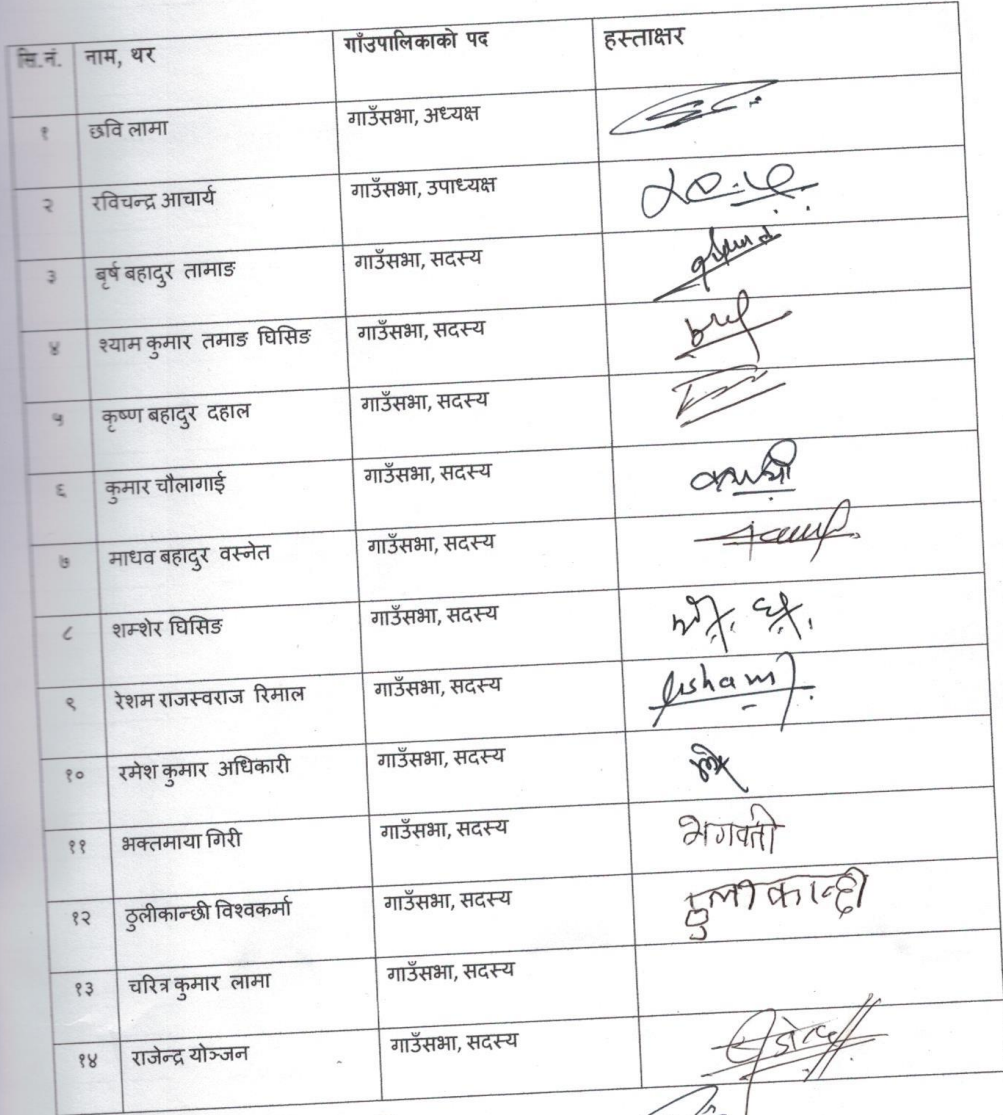 सि.नं. नाम, थर गाँउपालिकाको पद हस्ताक्षर
१ छवि लामा गाउँसभा, अध्यक्ष
२ रविचन्द्र आचार्य गाउँसभा, उपाध्यक्ष
३ बृर्ष बहादुर तामाङ गाउँसभा, सदस्य
४ श्याम कुमार तमाङ घिसिङ गाउँसभा, सदस्य
५ कृष्ण बहादुर दहाल गाउँसभा, सदस्य
६ कुमार चौलागाई गाउँसभा, सदस्य
७ माधव बहादुर वस्नेत गाउँसभा, सदस्य
८ शम्शेर घिसिङ गाउँसभा, सदस्य
९ रेशम राजस्वराज रिमाल गाउँसभा, सदस्य
१० रमेश कुमार अधिकारी गाउँसभा, सदस्य
११ भक्तमाया गिरी गाउँसभा, सदस्य भगवती
१२ ठुलीकान्छी विश्वकर्मा गाउँसभा, सदस्य
१३ चरित्र कुमार लामा गाउँसभा, सदस्य
१४ राजेन्द्र योञ्जन गाउँसभा, सदस्य